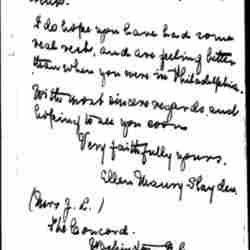 I do hope you have had some
real rest, and are feeling better
than when you were in Philadelphia.
With most sincere regards, and
hoping to see you soon
Very faithfully yours,
Ellen Maury Slayden
(Mrs J. L.)
The Concord.
Washington